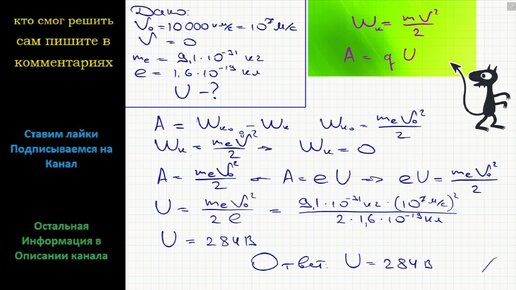 кто смог решить
сам пишите в
комментариях
Ставим лайки
Подписываемся на
Канал
Остальная
Информация в
Описании канала
Дано:
V₀ = 10 000 км/с = 10⁷ м/с
V = 0
mₑ = 9,1·10⁻³¹ кг
e = 1,6·10⁻¹⁹ кл
U - ?
Wₖ = mV²/2
A = q U
A = Wₖ₀ - Wₖ Wₖ₀ = mₑV₀²/2
Wₖ = mₑV²/2 → Wₖ = 0
A = mₑV₀²/2 ← A = eU → eU = mₑV₀²/2
U = mₑV₀²/2e = 9,1·10⁻³¹ кг · (10⁷ м/с)²/2·1,6·10⁻¹⁹ кл
U = 284 В
Ответ: U = 284 В